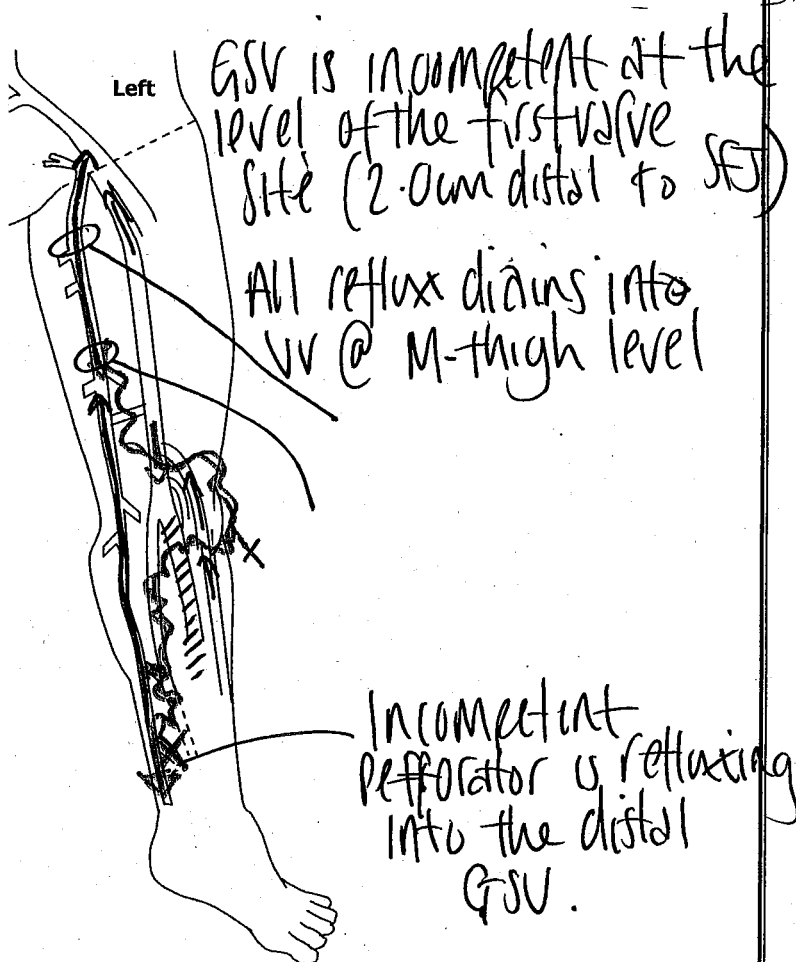 Left
GSV is incompetent at the
level of the first valve
site (2.0cm distal to SFJ)
All reflux drains into
VV @ M-thigh level
Incompetent
perforator is refluxing
into the distal
GSV.